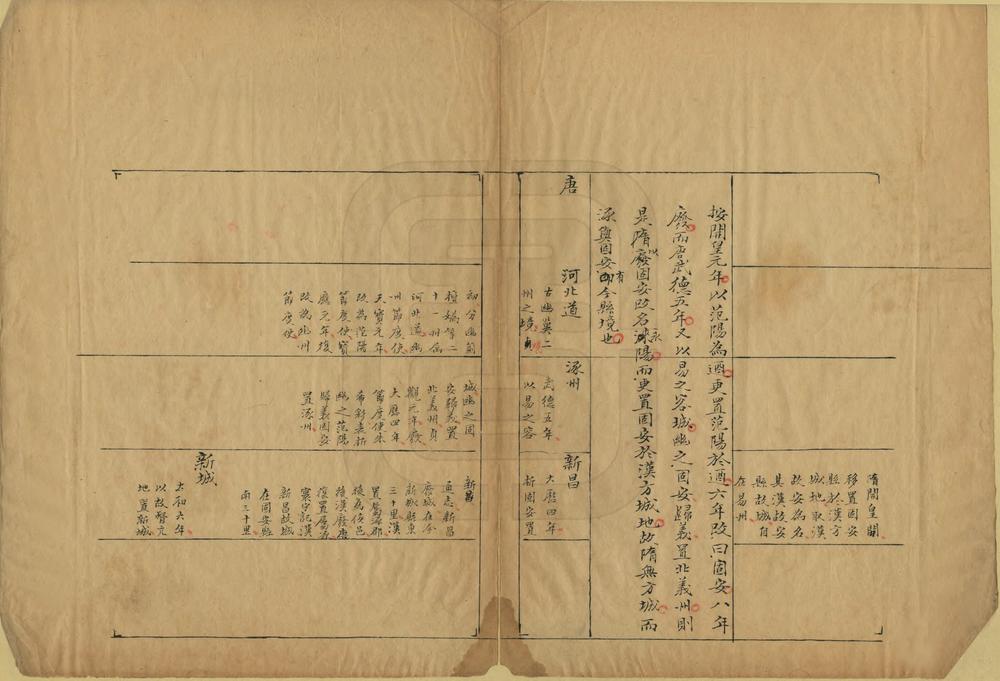 隋開皇開
移置固安
縣於漢方
城地取漢
故安為名
其漢故安
縣故城自
在易州
按開皇元年以范陽為遒更置范陽於遒六年改曰固安八年
廢而唐武德五年又以易之容城幽之固安歸義置北義州則
是隋以廢固安改名涿陽而更置固安於漢方城地故隋無方城而
涿與固安即有今縣境也
唐
河北道
古幽冀二
州之境
初分幽薊
檀媯等二
十一州為
河北道幽
州節度使
天寶元年
改為范陽
節度使寶
應元年復
改為幽州
節度使
涿州
武德五年
以易之容
城幽之固
安歸義置
北義州貞
觀元年廢
大曆四年
節度使朱
希彩表析
幽之范陽
歸義固安
置涿州
新昌
大曆四年
析固安置
新昌
孟志新昌
廢城在今
新城縣東
三十里漢
置屬涿郡
後為侯邑
後漢廢唐
復置屬涿
寰宇記漢
新昌故城
在固安縣
南三十里
新城
太和六年
以故督亢
地置新城